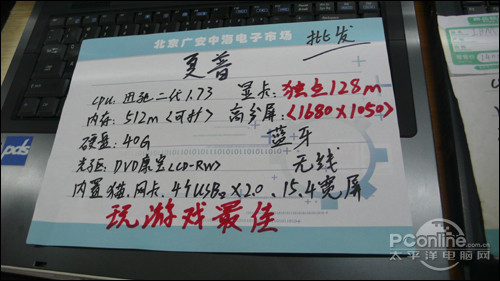 北京广安中海电子市场
批发
夏普
CPU: 迅驰二代1.73 显卡: 独立128m
内存: 512m <可扩> 高分屏: <1680X1050>
硬盘: 40G 蓝牙
光驱: DVD康宝(CD-RW) 无线
内置猫.网卡. 4个USB2X2.0 、15.4宽屏
玩游戏最佳
pds
PConline.com.cn
太平洋电脑网